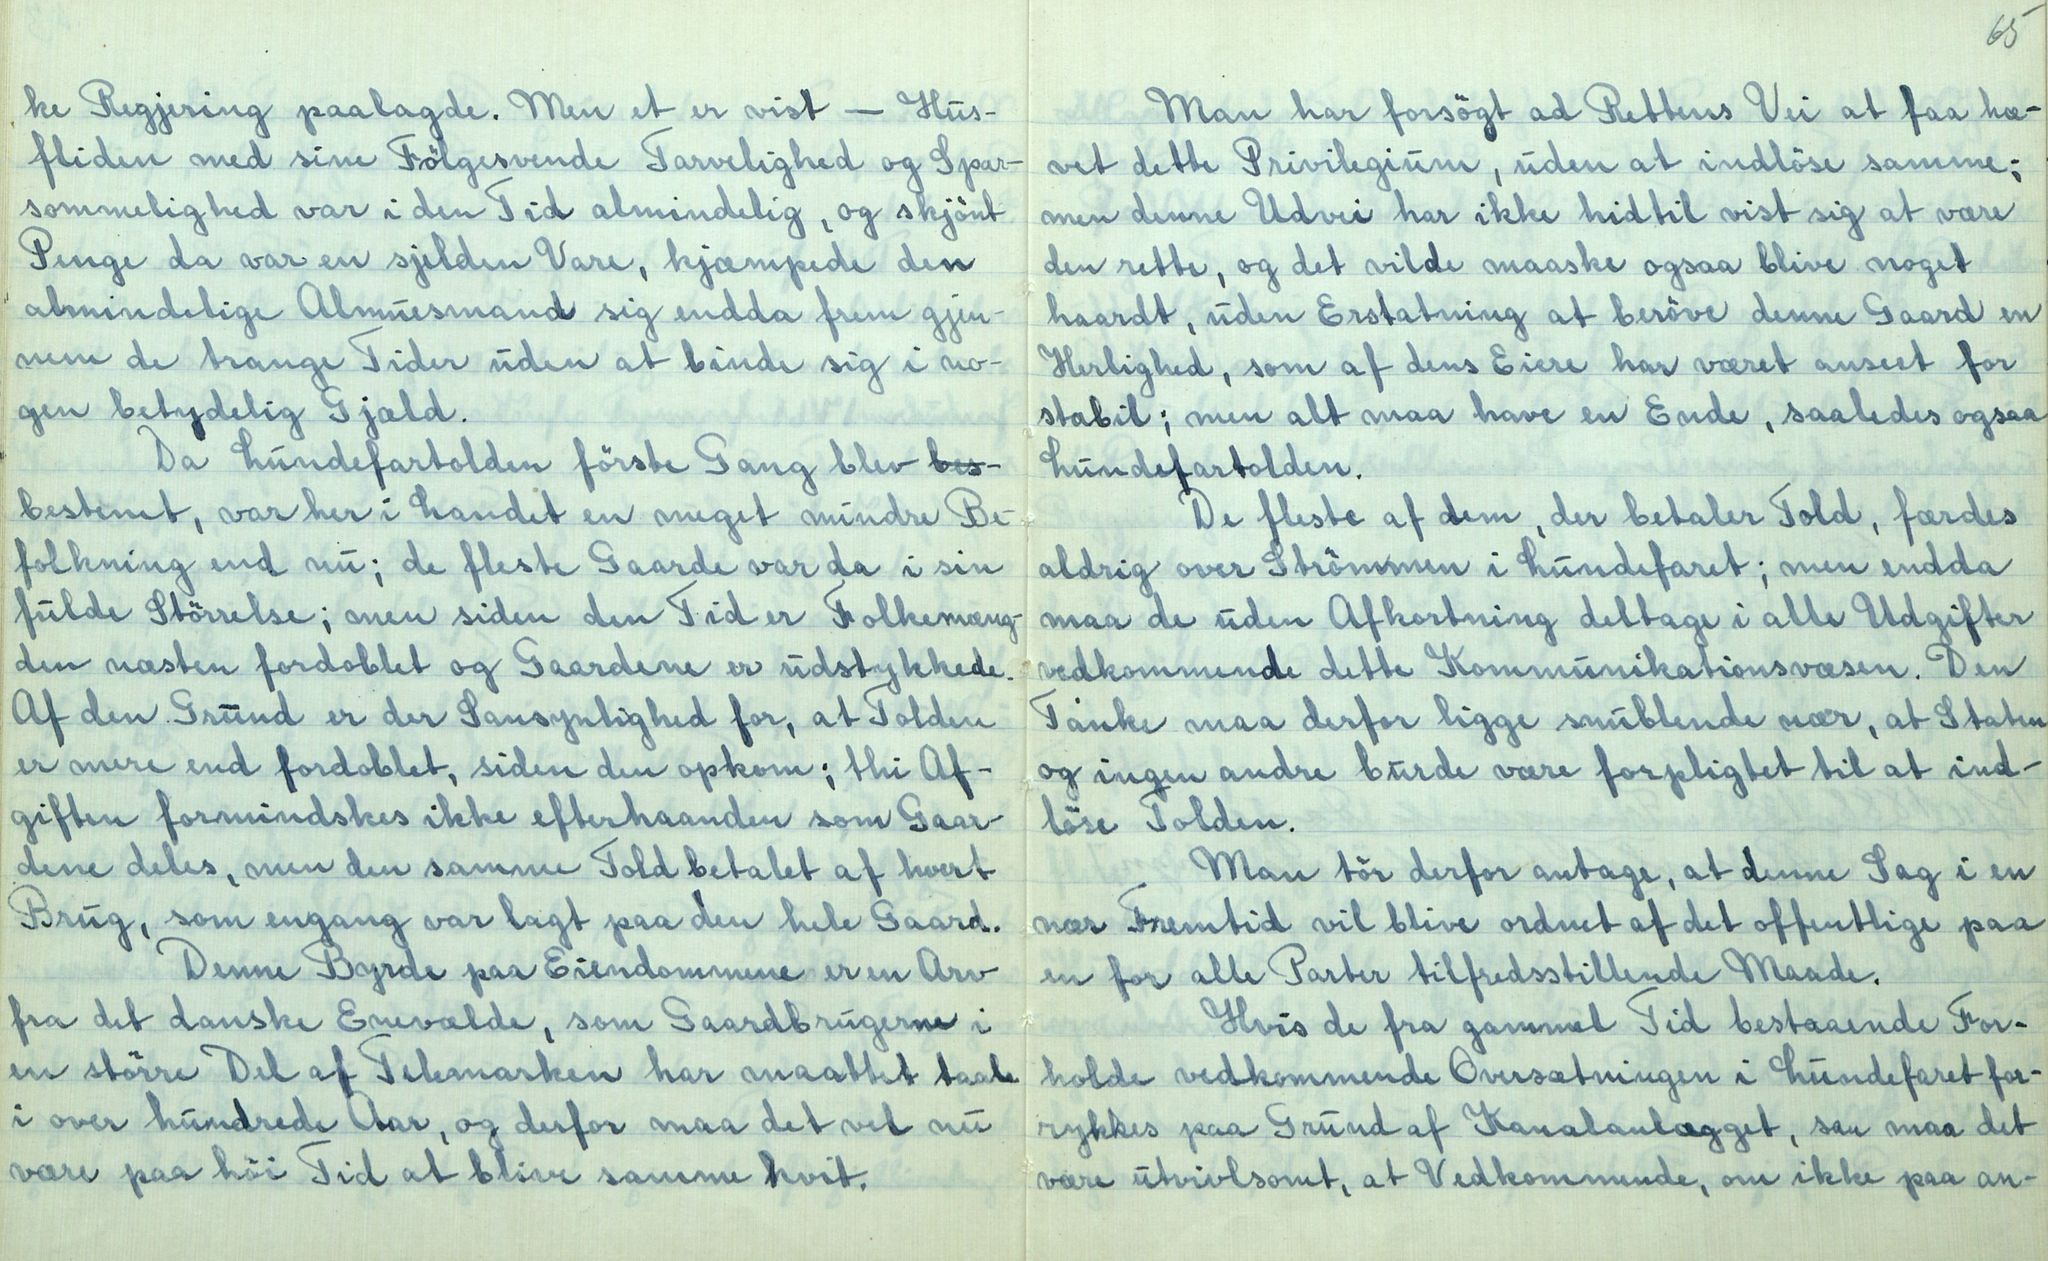 ke Regjering paalagde. Men et er vist — Hus-
fliden med sine Fölgesvende Tarvelighed og Spar-
sommelighed var i den Tid almindelig, og skjönt
Penge da var en sjelden Vare, kjæmpede den
almindelige Almuesmand sig endda frem gjen-
nem de trange Tider uden at binde sig i no-
gen betydelig Gjæld.
Da Lundefartolden förste Gang blev bes-
bestemt, var her i Landet en meget mindre Be-
folkning end nu; de fleste Gaarde var da i sin
fulde Störrelse; men siden den Tid er Folkemæng-
den næsten fordoblet og Gaardene er udstykkede.
Af den Grund er der Sansynlighed for, at Tolden
er mere end fordoblet, siden den opkom; thi Af-
giften formindskes ikke efterhaanden som Gaar-
dene deles, men den samme Told betalet af hvert
Brug, som engang var lagt paa den hele Gaard.
Denne Byrde paa Eiendommene er en Arv
fra det danske Enevælde, som Gaardbrugerne i
en större Del af Telemarken har maattet taale
i over hundrede Aar, og derfor maa det vel nu
være paa höi Tid at blive samme kvit.
65
Man har forsögt ad Rettens Vei at faa hæ-
vet dette Privilegium, uden at indlöse samme;
men denne Udvei har ikke hidtil vist sig at være
den rette, og det vilde maaske ogsaa blive noget
haardt, uden Erstatning at beröve denne Gaard en
Herlighed, som af dens Eiere har været anseet for
stabil; men alt maa have en Ende, saaledes ogsaa
Lundefartolden.
De fleste af dem, der betaler Told, færdes
aldrig over Strömmen i Lundefaret; men endda
maa de uden Afkortning deltage i alle Udgifter
vedkommende dette Kommunikationsvæsen. Den
Tanke maa derfor ligge snublende nær, at Staten
og ingen andre burde være forpligtet til at ind-
löse Tolden.
Man tör derfor antage, at denne Sag i en
nær Fremtid vil blive ordnet af det offentlige paa
en for alle Parter tilfredsstillende Maade.
Hvis de fra gammel Tid bestaaende For-
holde vedkommende Oversætningen i Lundefaret for-
rykkes paa Grund af Kanalanlægget, saa maa det
være utvivlsomt, at Vedkommende, om ikke paa an-